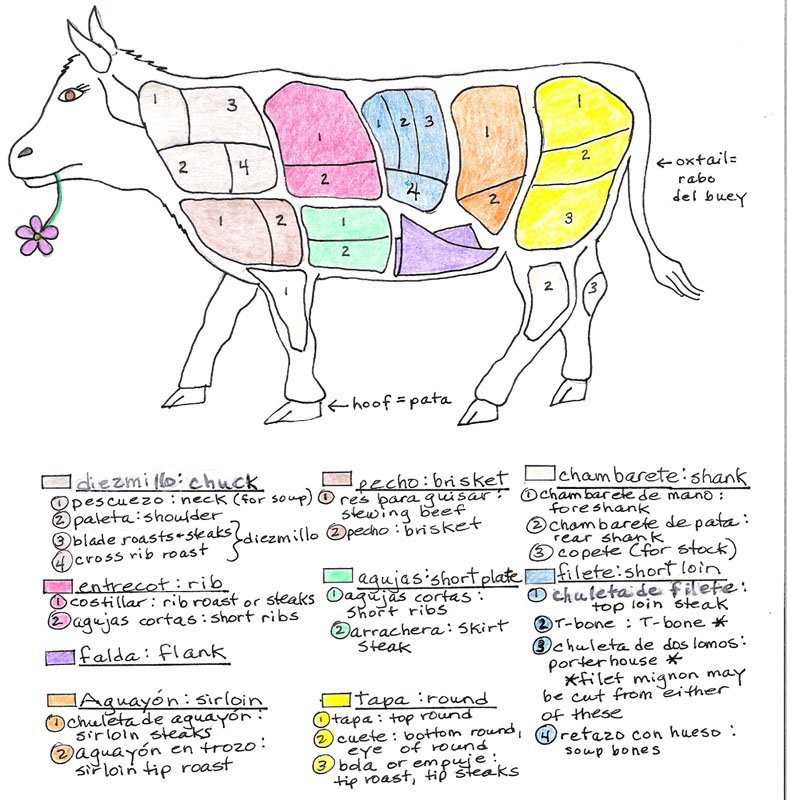 1
3
2
4
1
2
1
2
3
4
1
2
1
2
3
1
2
1
2
1
2
3
← oxtail =
rabo
del buey
← hoof = pata
diezmillo: chuck
1 pescuezo: neck (for soup)
2 paleta: shoulder
3 blade roasts + steaks
4 cross rib roast
} diezmillo
entrecot: rib
1 costillar: rib roast or steaks
2 agujas cortas: short ribs
falda: flank
Aguayón: sirloin
1 chuleta de aguayón:
sirloin steaks
2 aguayón en trozo:
sirloin tip roast
pecho: brisket
1 res para guisar:
stewing beef
2 pecho: brisket
agujas: short plate
1 agujas cortas:
short ribs
2 arrachera: skirt
steak
Tapa: round
1 tapa: top round
2 cuete: bottom round,
eye of round
3 bola or empuje:
tip roast, tip steaks
chambarete: shank
1 chambarete de mano:
foreshank
2 chambarete de pata:
rear shank
3 copete (for stock)
filete: short loin
1 chuleta de filete:
top loin steak
2 T-bone: T-bone *
3 chuleta de dos lomos:
porterhouse *
* filet mignon may
be cut from either
of these
4 retazo con hueso:
soup bones